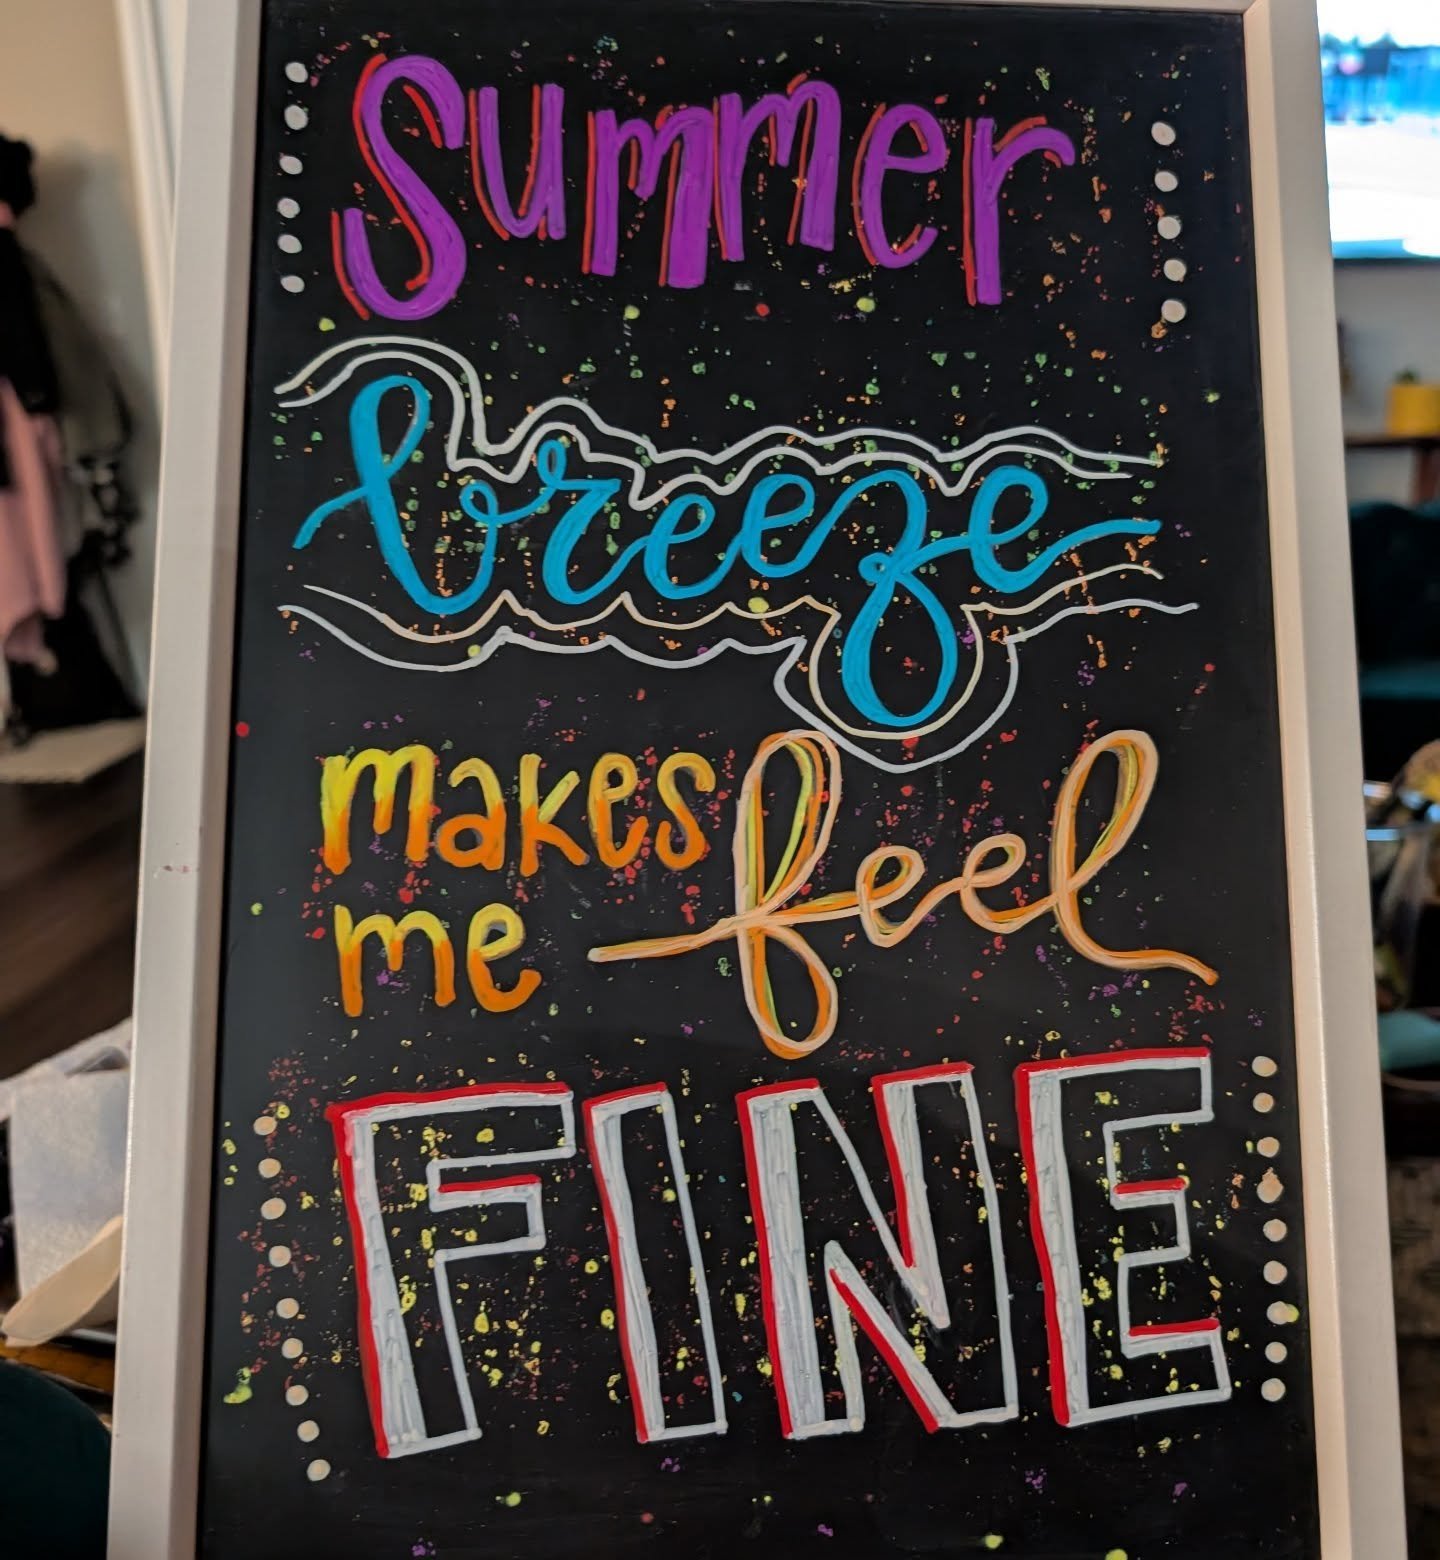 Summer
breeze
makes feel
me
FINE